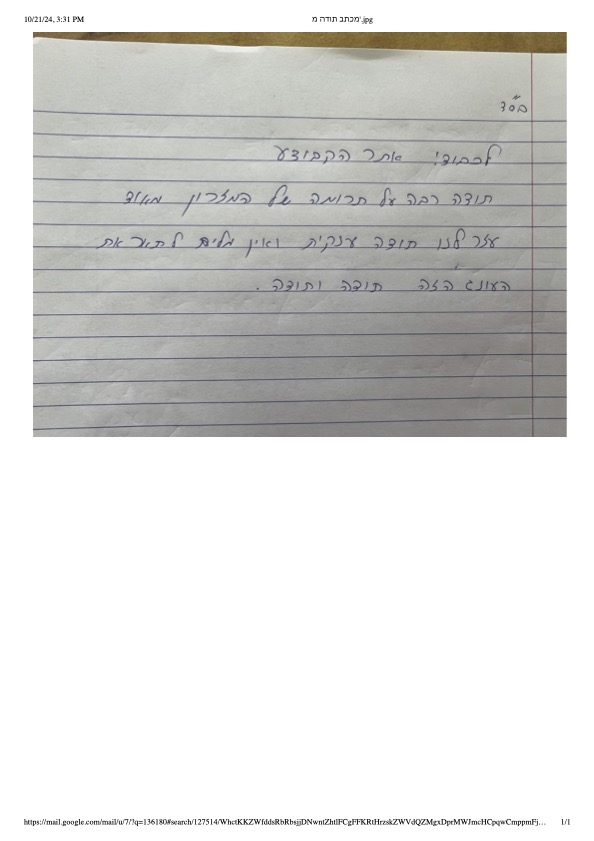 10/21/24, 3:31 PM
מכתב תודה מ'.jpg
בס"ד
לכבוד! אתר הקבוצע
תודה רבה על תרומה של המזרון מאוד
עזר לנו תודה ענקית ואין מלים לתאר את
העונג הזה תודה ותודה.
https://mail.google.com/mail/u/7/?q=136180#search/127514/WhctKKZWfddsRbRbsjjDNwntZhtlFCgFFKRtHrzskZWVdQZMgxDprMWJmcHCpqwCmppmFj…
1/1